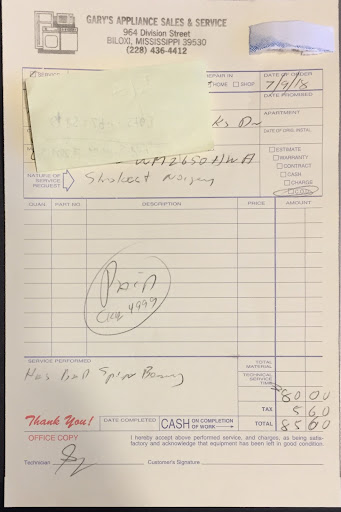 GARY'S APPLIANCE SALES & SERVICE
964 Division Street
BILOXI, MISSISSIPPI 39530
(228) 436-4412
REPAIR IN
HOME □ SHOP
DATE OF ORDER
7/9/18
DATE PROMISED
APARTMENT
DATE OF ORIG. INSTAL.
WM2650HWA
NATURE OF SERVICE REQUEST
□ ESTIMATE
□ WARRANTY
□ CONTRACT
□ CASH
□ CHARGE
QUAN. PART NO. DESCRIPTION PRICE AMOUNT
Paid
4999
SERVICE PERFORMED
Has Bad
TOTAL MATERIAL
TECHNICAL SERVICE TIME
80 00
TAX 5 60
Thank You! DATE COMPLETED CASH ON COMPLETION OF WORK TOTAL 85 60
OFFICE COPY
I hereby accept above performed service, and charges, as being satisfactory and acknowledge that equipment has been left in good condition.
Technician
Customer's Signature